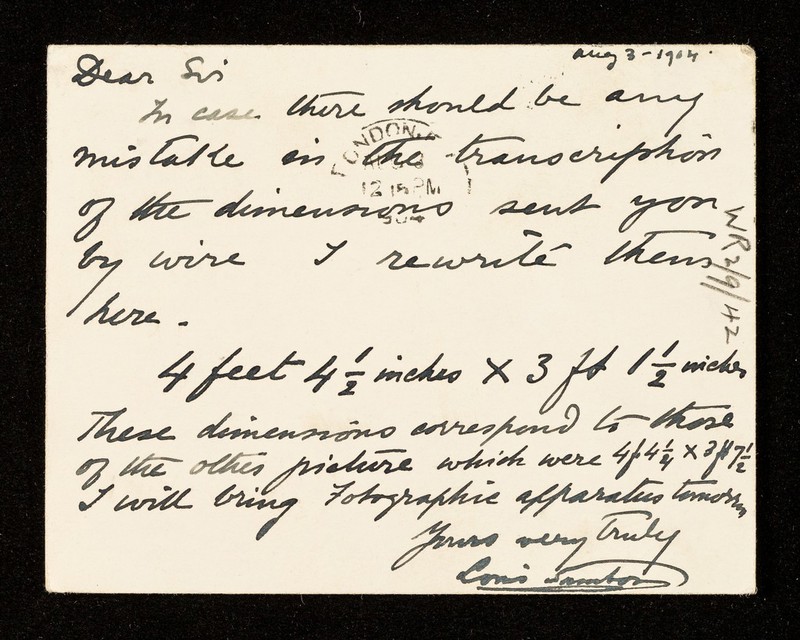 Aug 3 - 1904.
Dear Sir
In case there should be any
mistake in the transcription
of the dimensions sent you
by wire I rewrite them
here.
4 feet 4 1/2 inches X 3 ft 1 1/2 inches
These dimensions correspond to those
of the other picture which were 4f 4 1/4 X 3ft 7 1/2
I will bring Fotographic apparatus tomorrow
Yours very truly
Louis Sambon
LONDON
12 15 PM
WR2/9/42